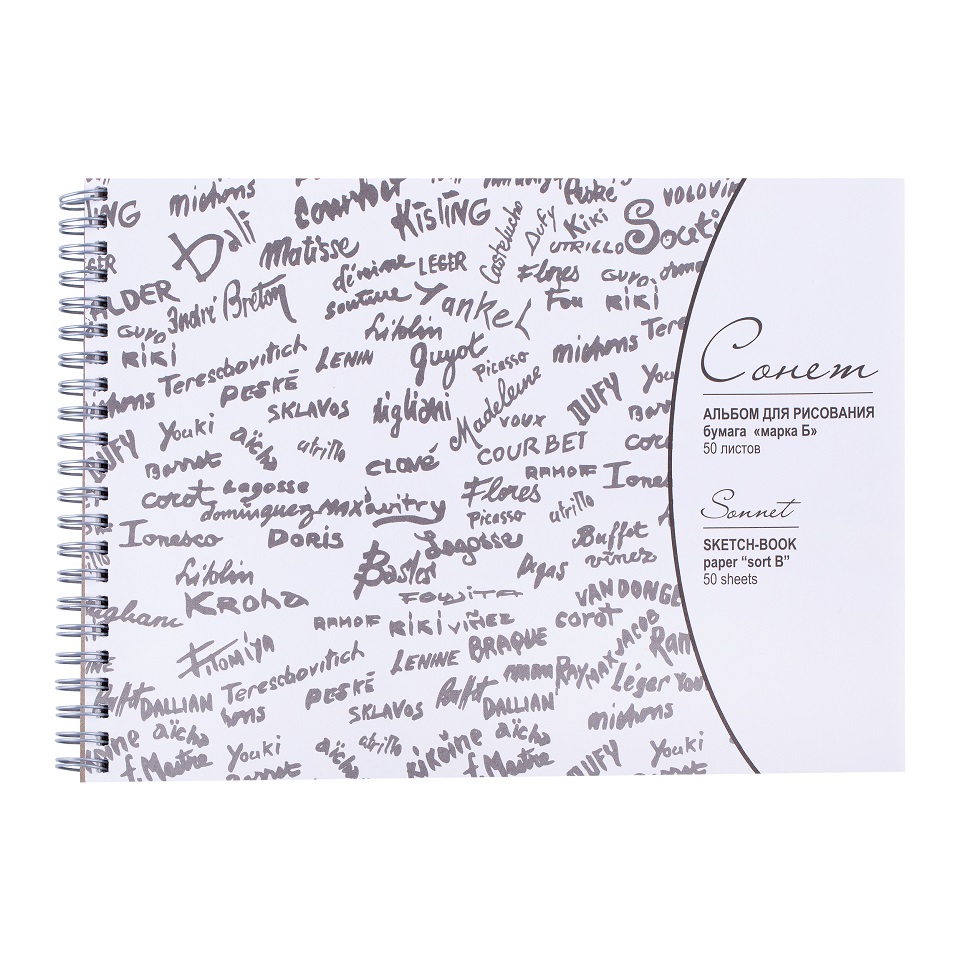 michons
COURBET
Ploké
VOLOVIK
KISLING
Dalí
Castelucho
Dufy
Kiki
UTRILLO
Souti
Matisse
dérième
LEGER
souture
Flores
GUYO
ALDER
André Breton
Yankel
Fou
RIKI
GUYO
RIKI
Liblin
LENIN
Guyot
Picasso
michons
Tere
Tereschovitch
PESKÉ
Madeleine
DUFY
You
chons
SKLAVOS
voux
Youki
aïcho
utrillo
COURBET
Barrot
CLOVÉ
RAMOF
Iones
corot
Lagosse
Flores
domínguez
max
vitry
Picasso
utrillo
Ionesco
DORIS
Lagosse
Buffet
viñez
Liblin
Bastet
Degas
KROHA
FOUJITA
VAN DONGE
RAMOF
RIKI
VIÑEZ
corot
FTOMIYA
Tereschovitch
LENINE
BRAQUE
RAY
MAX JACOB
Ram
Buffet
DALLIAN
PESKÉ
Buffet
DALLIAN
Léger
You
SKLAVOS
michons
aïcho
Youki
aïcho
utrillo
KIKOÏNE
f. Maitre
DUFY
Youki
Сонет
АЛЬБОМ ДЛЯ РИСОВАНИЯ
бумага «марка Б»
50 листов
Sonnet
SKETCH-BOOK
paper “sort B”
50 sheets